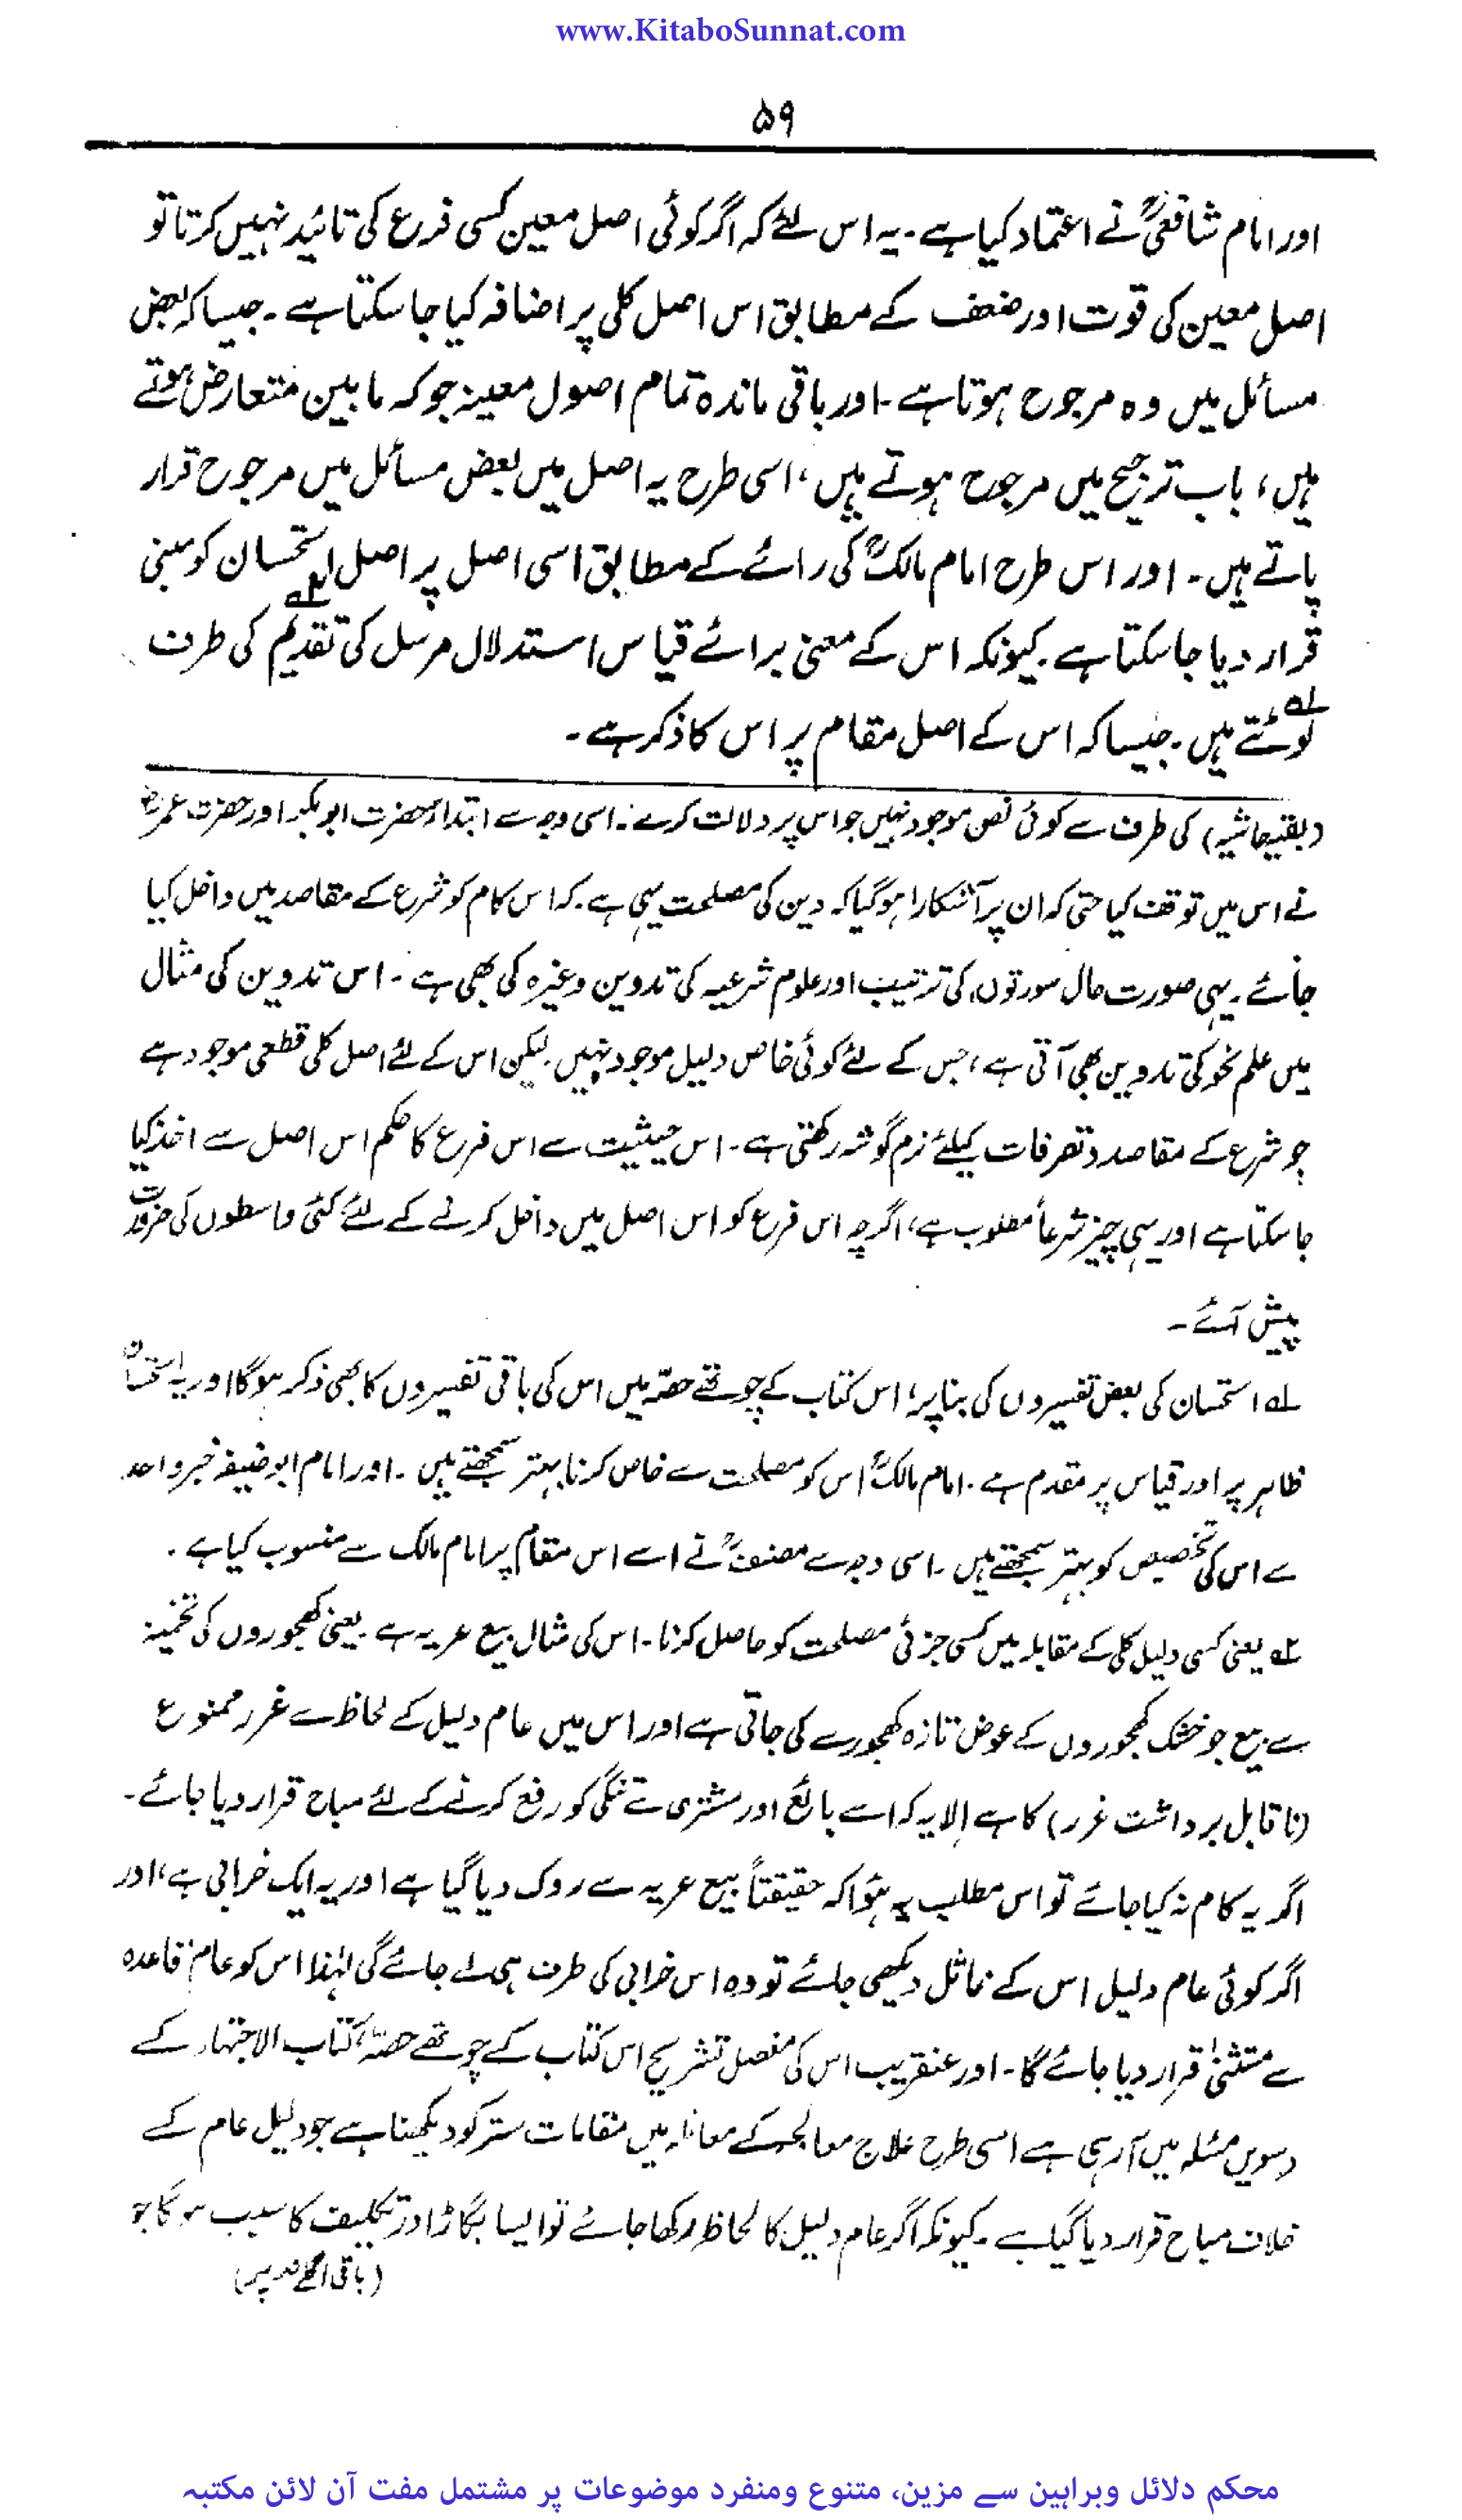 www.KitaboSunnat.com
۵۹
اور امام شافعیؒ نے اعتماد کیا ہے۔ یہ اس لئے کہ اگر کوئی اصل معین کسی فرع کی تائید نہیں کرتا تو
اصل معین کی قوت اور ضعف کے مطابق اس اصل کلی پر اضافہ کیا جا سکتا ہے۔ جیسا کہ بعض
مسائل میں وہ مرجوح ہوتا ہے۔ اور باقی ماندہ تمام اصول معینہ جو کہ مابین متعارض ہوتے
ہیں، باب ترجیح میں مرجوح ہوتے ہیں، اسی طرح یہ اصل میں بعض مسائل میں مرجوح قرار
پاتے ہیں۔ اور اس طرح امام مالکؒ کی رائے کے مطابق اسی اصل پر اصل استحسان کو مبنی
قرار دیا جا سکتا ہے۔ کیونکہ اس کے معنی برائے قیاس استدلال مرسل کی تقدیم کی طرف
لوٹتے ہیں۔ جیسا کہ اس کے اصل مقام پر اس کا ذکر ہے۔
(بقیہ حاشیہ) کی طرف سے کوئی نص موجود نہیں جو اس پر دلالت کرے۔ اسی وجہ سے ابتداءً حضرت ابوبکر اور حضرت عمرؓ
نے اس میں توقف کیا حتیٰ کہ ان پر آشکارا ہو گیا کہ دین کی مصلحت یہی ہے۔ کہ اس کام کو شرع کے مقاصد میں داخل کیا
جائے۔ یہی صورت حال سورتوں کی ترتیب اور علوم شرعیہ کی تدوین وغیرہ کی بھی ہے۔ اس تدوین کی مثال
میں علم نحو کی تدوین بھی آتی ہے، جس کے لئے کوئی خاص دلیل موجود نہیں۔ لیکن اس کے لئے اصل کلی قطعی موجود ہے
جو شرع کے مقاصد و تصرفات کیلئے نرم گوشہ رکھتی ہے۔ اس حیثیت سے اس فرع کا حکم اس اصل سے اخذ کیا
جا سکتا ہے اور یہی چیز شرعاً مطلوب ہے، اگرچہ اس فرع کو اس اصل میں داخل کرنے کے لئے کئی واسطوں کی ضرورت
پیش آئے۔
۱؎ استحسان کی بعض تفسیروں کی بنا پر، اس کتاب کے چوتھے حصہ میں اس کی باقی تفسیروں کا بھی ذکر ہوگا اور یہ استحسان
ظاہر پر اور قیاس پر مقدم ہے۔ امام مالکؒ اس کو مصلحت سے خاص کرنا بہتر سمجھتے ہیں۔ اور امام ابو حنیفہ خبر واحد
سے اس کی تخصیص کو بہتر سمجھتے ہیں۔ اسی وجہ سے مصنفؒ نے اسے اس مقام پر امام مالک سے منسوب کیا ہے۔
۲؎ یعنی کسی دلیل کلی کے مقابلہ میں کسی جزئی مصلحت کو حاصل کرنا۔ اس کی مثال بیع عریہ ہے۔ یعنی کھجوروں کی تخمینہ
سے بیع جو خشک کھجوروں کے عوض تازہ کھجور سے کی جاتی ہے اور اس میں عام دلیل کے لحاظ سے غرر ممنوع
(ناقابل برداشت غرر) کا ہے اِلا یہ کہ اسے بائع اور مشتری سے تنگی کو رفع کرنے کے لئے مباح قرار دیا جائے۔
اگر یہ کام نہ کیا جائے تو اس مطلب یہ ہوٗا کہ حقیقتاً بیع عریہ سے روک دیا گیا ہے اور یہ ایک خرابی ہے، اور
اگر کوئی عام دلیل اس کے مماثل دیکھی جائے تو وہ اس خرابی کی طرف ہی لے جائے گی لہٰذا اس کو عام قاعدہ
سے مستثنیٰ قرار دیا جائے گا۔ اور عنقریب اس کی مفصل تشریح اس کتاب کے چوتھے حصہ، کتاب الاجتہاد کے
دسویں مسئلہ میں آ رہی ہے اسی طرح علاج معالجہ کے معاملہ میں مقامات ستر کو دیکھنا ہے جو دلیل عام کے
خلاف مباح قرار دیا گیا ہے۔ کیونکہ اگر عام دلیل کا لحاظ رکھا جائے تو ایسا بگاڑ اور تکلیف کا سبب ہو گا جو
(باقی اگلے صفحہ پر)
محکم دلائل وبراہین سے مزین، متنوع ومنفرد موضوعات پر مشتمل مفت آن لائن مکتبہ